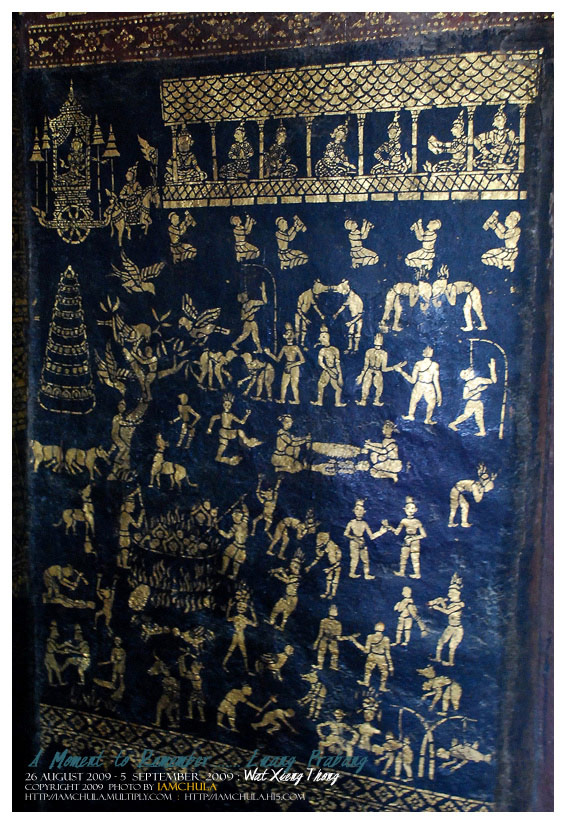 A Moment to Remember - Luang Prabang
26 AUGUST 2009 - 5 SEPTEMBER 2009 : Wat Xieng Thong
COPYRIGHT 2009 PHOTO BY IAMCHULA
HTTP://IAMCHULA.MULTIPLY.COM : HTTP://IAMCHULA.HI5.COM